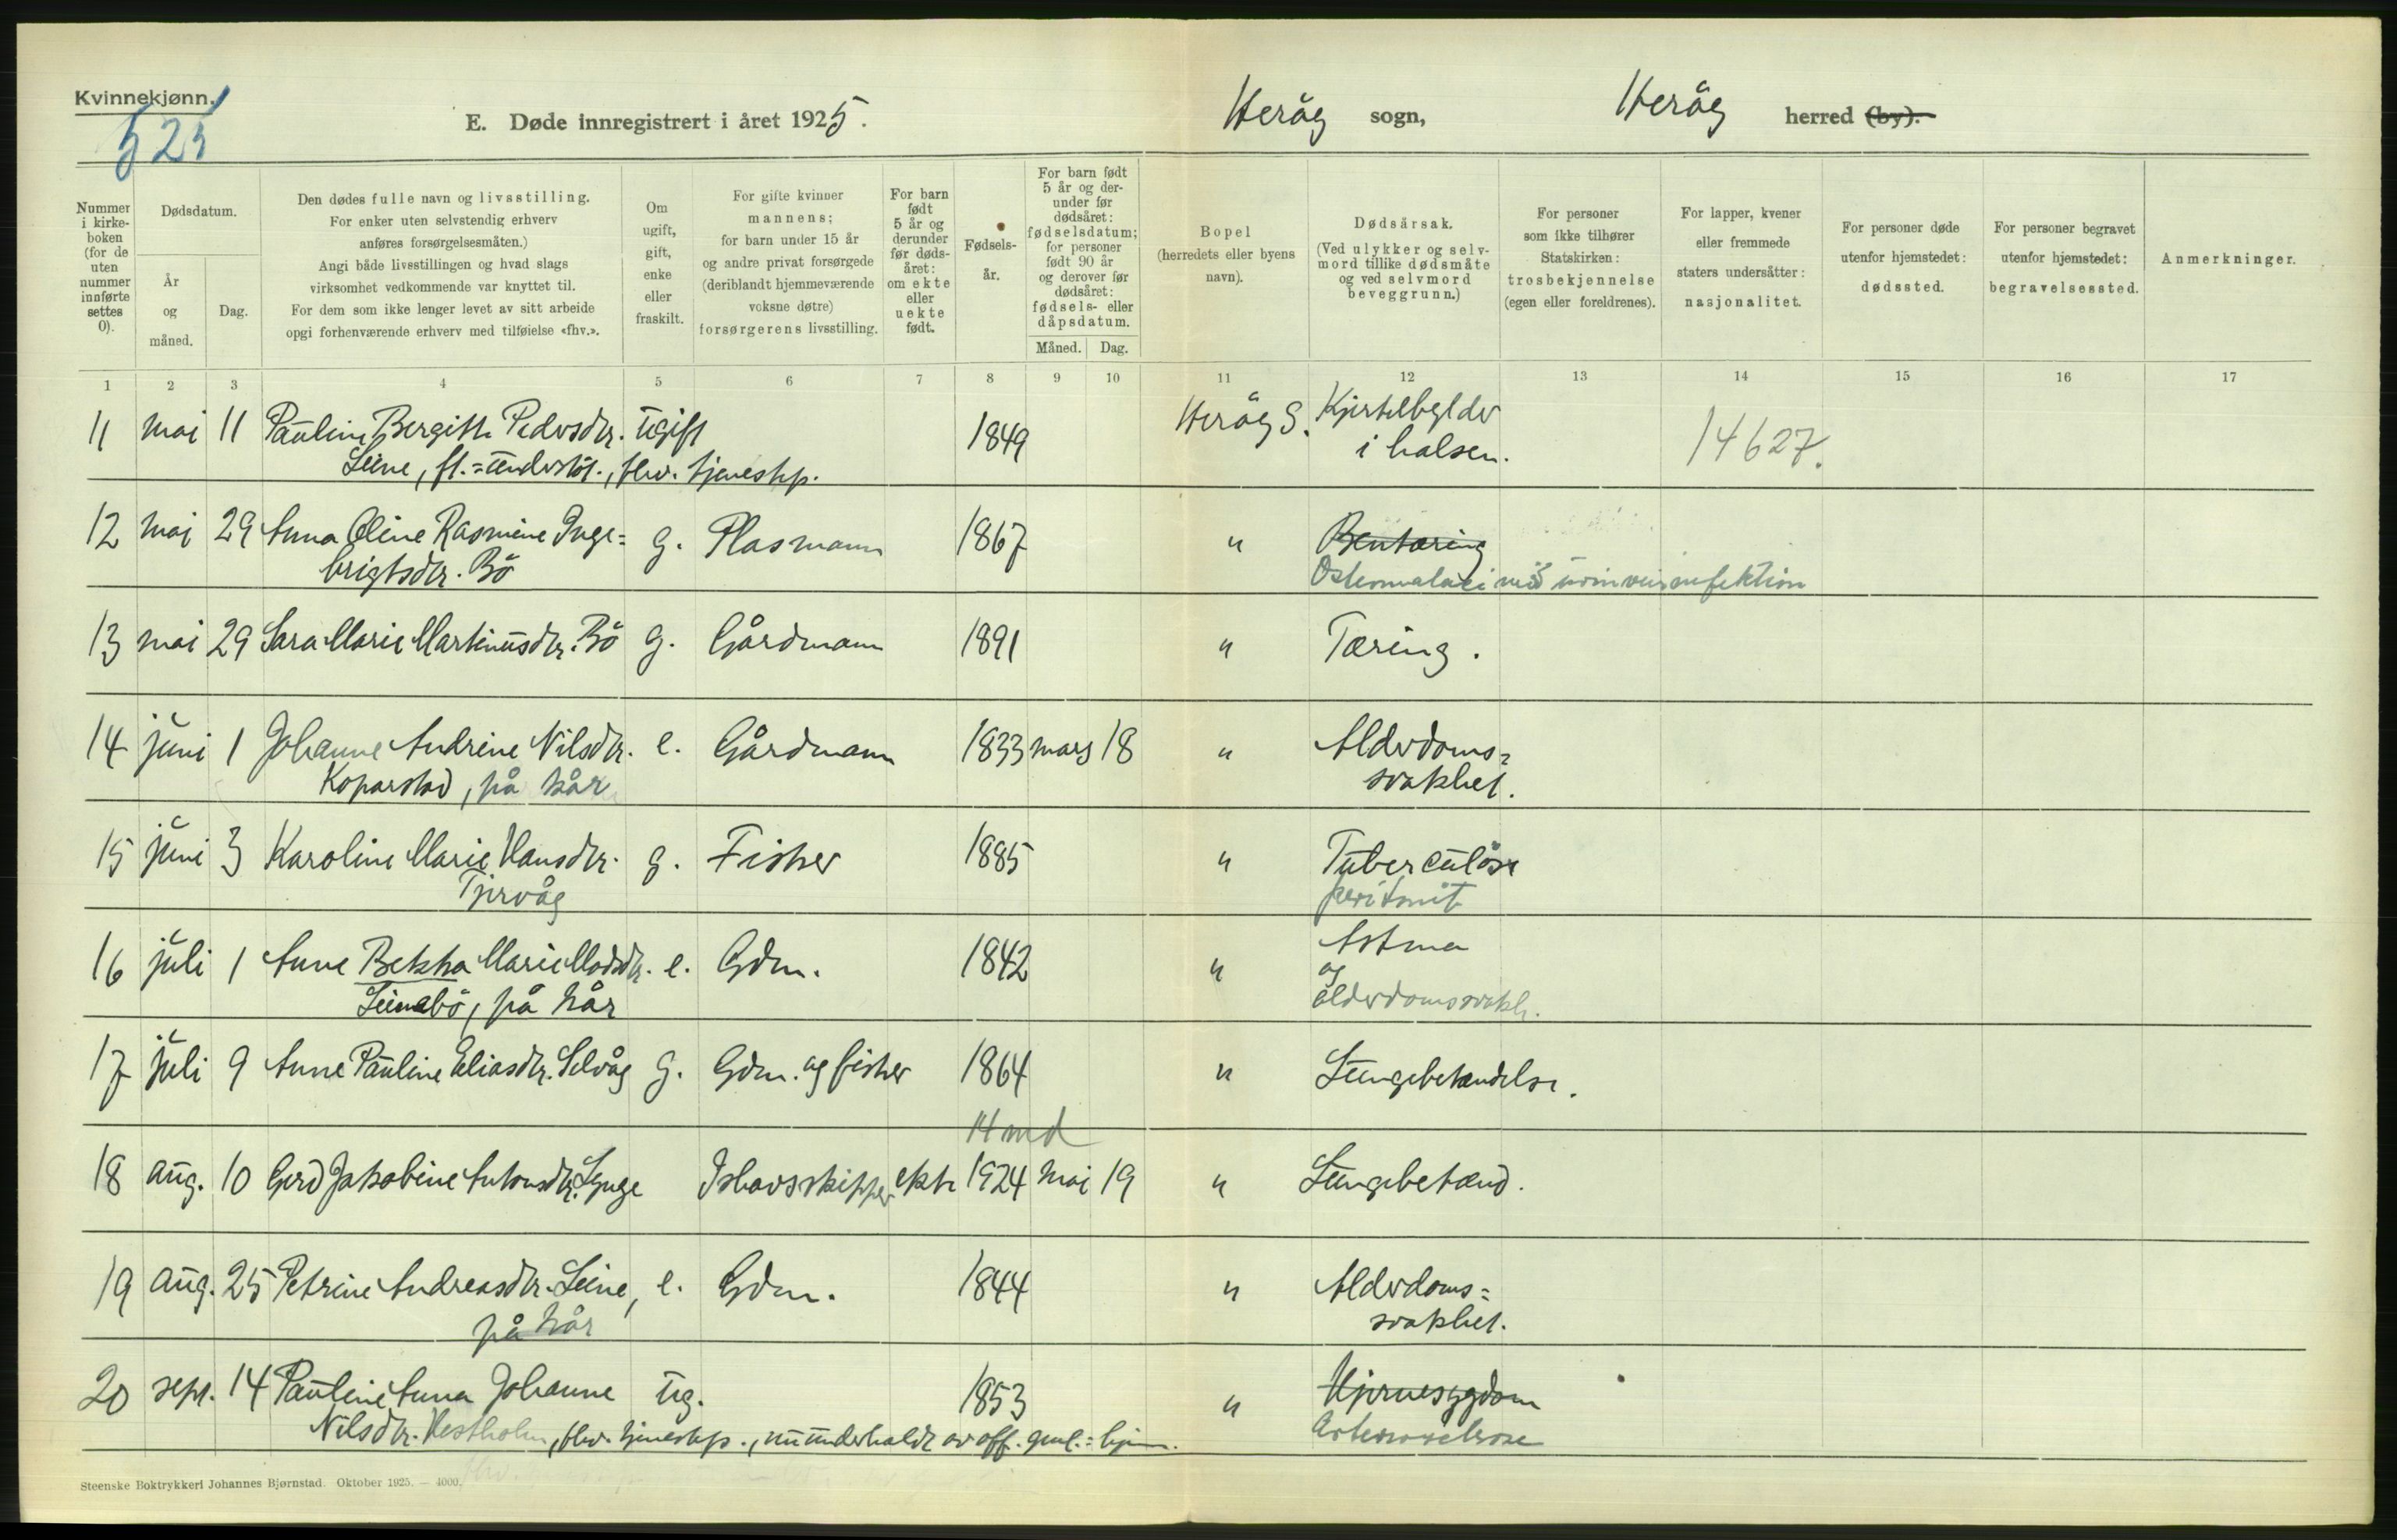 Kvinnekjønn.
525
E. Døde innregistrert i året 1925.
Herøy sogn, Herøy herred (by).
Nummer i kirkeboken (for de uten nummer innførte settes 0).
Dødsdatum.
År og måned.
Dag.
Den dødes fulle navn og livsstilling.
For enker uten selvstendig erhverv anføres forsørgelsesmåten.)
Angi både livsstillingen og hvad slags virksomhet vedkommende var knyttet til.
For dem som ikke lenger levet av sitt arbeide opgi forhenværende erhverv med tilføielse «fhv.».
Om ugift, gift, enke eller fraskilt.
For gifte kvinner mannens; for barn under 15 år og andre privat forsørgede (deriblandt hjemmeværende voksne døtre) forsørgerens livsstilling.
For barn født 5 år og derunder før dødsåret: om ekte eller uekte født.
Fødsels-år.
For barn født 5 år og derunder før dødsåret: fødselsdatum; for personer født 90 år og derover før dødsåret: fødsels- eller dåpsdatum.
Måned. Dag.
Bopel (herredets eller byens navn).
Dødsårsak.
(Ved ulykker og selvmord tillike dødsmåte og ved selvmord beveggrunn.)
For personer som ikke tilhører Statskirken: trosbekjennelse (egen eller foreldrenes).
For lapper, kvener eller fremmede staters undersåtter: nasjonalitet.
For personer døde utenfor hjemstedet: dødssted.
For personer begravet utenfor hjemstedet: begravelsessted.
Anmerkninger.
1 2 3 4 5 6 7 8 9 10 11 12 13 14 15 16 17
11 mai 11 Pauline Bergitte Pedersdtr. ugift 1849 Herøy S. Kjertelbylder 14627.
Leine, ft.=underst., fhv. tjenestep. i halsen.
12 mai 29 Anna Oline Rasmine Inge= g. Plasmann 1867 " Bentæring
brigtsdtr. Bö Osteomalaci med urinveisinfektion
13 mai 29 Sara Marie Martinusdtr. Bö g. Gårdmann 1891 " Tæring.
14 juni 1 Johanne Andrine Nilsdtr. e. Gårdmann 1833 mars 18 " Alderdoms=
Koparstad, på kår svakhet.
15 juni 3 Karoline Marie Hansdtr. g. Fisker 1885 " Tuberculøse
Tjervåg peritonit
16 juli 1 Anne Bekka Marie Madsdtr. e. Gdm. 1842 " Astma
og
Leinebö, på kår alderdomssvakh.
17 juli 9 Anne Pauline Eliasdtr. Selvåg g. Gdm. og fisker 1864 " Lungebetændelse.
14 md
18 aug. 10 Gerd Jakobine Antonsdtr. Lynge Ishavsskipper ekte 1924 mai 19 " Lungebetænd.
19 aug. 25 Petrine Andreasdtr. Leine, e. Gdm. 1844 " Alderdoms=
på kår svakhet.
20 sept. 14 Pauline Anna Johanne ug. 1853 " Hjernesygdom
Nilsdtr. Vestholm, fhv. tjenestep., nu underholdt av off. gml.=hjem. Arteriosclerose
Steenske Boktrykkeri Johannes Bjørnstad. Oktober 1925. — 4000.